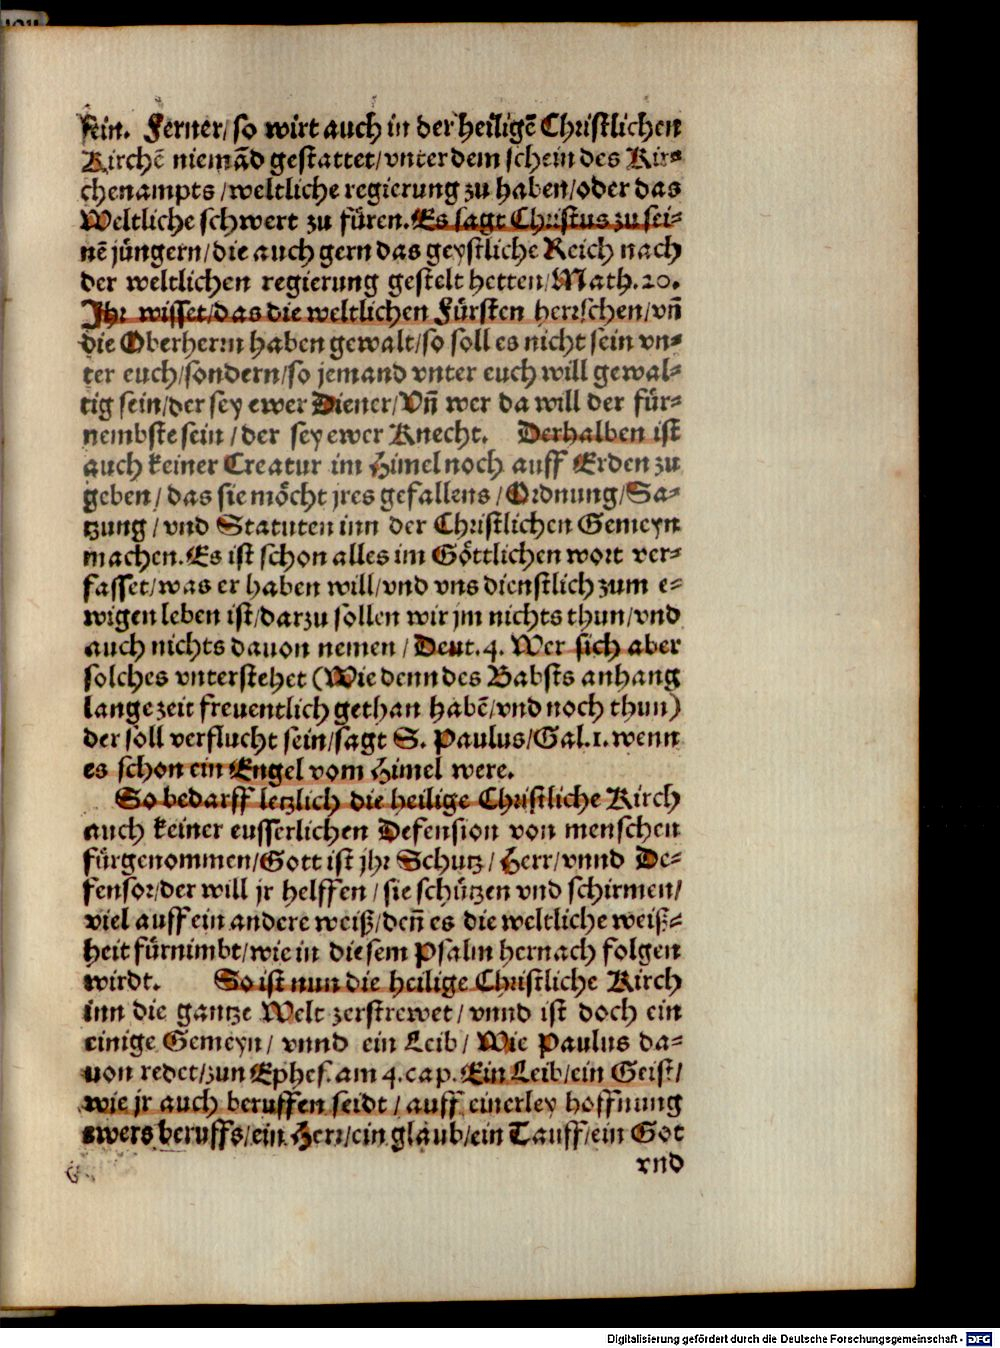 sein. Ferner/ so wirt auch in der heiligẽ Christlichen
Kirchẽ niemãd gestattet/ vnter dem schein des Kir⸗
chenampts / weltliche regierung zu haben/ oder das
Weltliche schwert zu füren. Es sagt Christus zu sei⸗
nẽ jüngern/ die auch gern das geystliche Reich nach
der weltlichen regierung gestelt hetten/ Math. 20.
Ihr wisset/ das die weltlichen Fürsten herrschen/ vñ
die Oberherrn haben gewalt/ so soll es nicht sein vn⸗
ter euch/ sondern/ so jemand vnter euch will gewal⸗
tig sein/ der sey ewer Diener/ Vñ wer da will der für⸗
nembste sein / der sey ewer Knecht. Derhalben ist
auch keiner Creatur im Himel noch auff Erden zu
geben/ das sie möcht jres gefallens / Ordnung/ Sa⸗
tzung / vnd Statuten inn der Christlichen Gemeyn
machen. Es ist schon alles im Göttlichen wort ver⸗
fasset/ was er haben will/ vnd vns dienstlich zum e⸗
wigen leben ist/ darzu sollen wir jm nichts thun/ vnd
auch nichts dauon nemen / Deut. 4. Wer sich aber
solches vnterstehet (Wie denn des Babsts anhang
lange zeit freuentlich gethan habẽ/ vnd noch thun)
der soll verflucht sein/ sagt S. Paulus/ Gal. 1. wenn
es schon ein Engel vom Himel were.
So bedarff letzlich die heilige Christliche Kirch
auch keiner eusserlichen Defension von menschen
fürgenommen/ Gott ist jhr Schutz / Herr/ vnnd De⸗
fensor/ der will jr helffen / sie schützen vnd schirmen/
viel auff ein andere weiß/ deñ es die weltliche weiß⸗
heit fürnimbt/ wie in diesem Psalm hernach folgen
wirdt. So ist nun die heilige Christliche Kirch
inn die gantze Welt zerstrewet / vnnd ist doch ein
einige Gemeyn/ vnnd ein Leib/ Wie Paulus da⸗
uon redet/ zun Ephes. am 4. cap. Ein Leib/ ein Geist/
wie jr auch beruffen seidt / auff einerley hoffnung
ewers beruffs/ ein Herr/ ein glaub/ ein Tauff/ ein Got
vnd
Digitalisierung gefördert durch die Deutsche Forschungsgemeinschaft - DFG